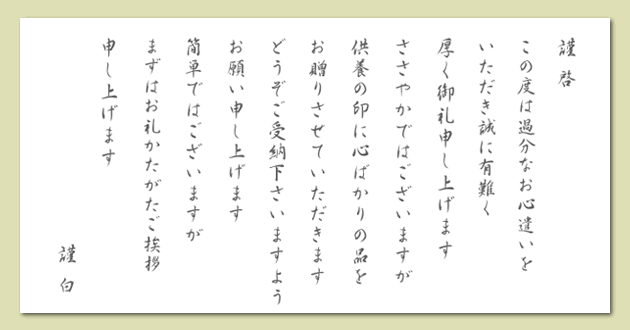 謹啓
この度は過分なお心遣いを
いただき誠に有難く
厚く御礼申し上げます
ささやかではございますが
供養の印に心ばかりの品を
お贈りさせていただきます
どうぞご受納下さいますよう
お願い申し上げます
簡単ではございますが
まずはお礼かたがたご挨拶
申し上げます
謹白